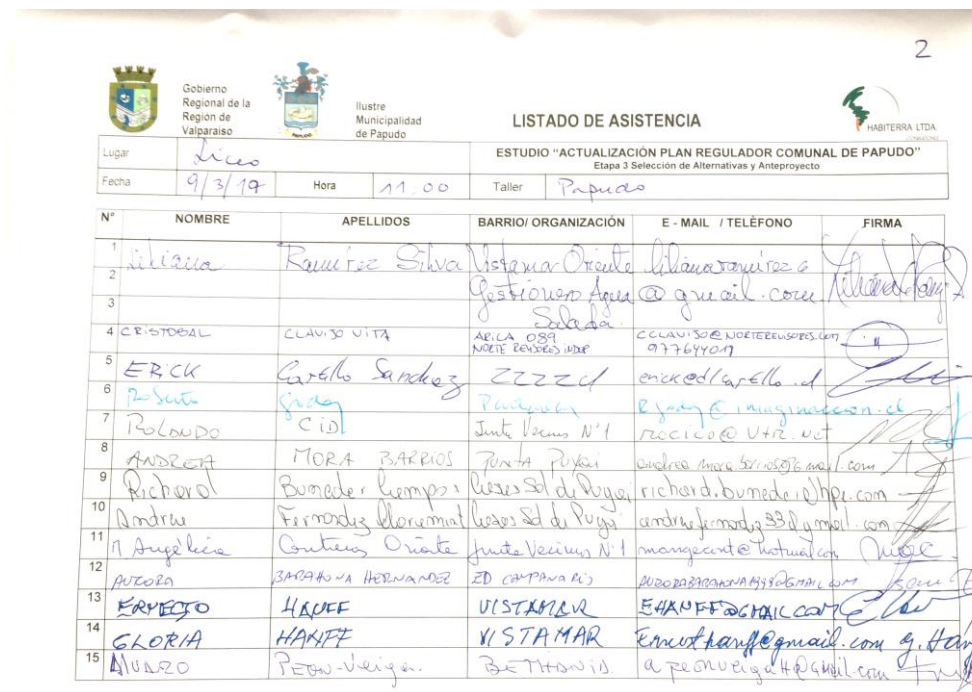 2
Gobierno
Regional de la
Region de
Valparaiso
PAPUDO
Ilustre
Municipalidad
de Papudo
LISTADO DE ASISTENCIA
HABITERRA LTDA.
Lugar Liceo ESTUDIO “ACTUALIZACIÓN PLAN REGULADOR COMUNAL DE PAPUDO”
Etapa 3 Selección de Alternativas y Anteproyecto
Fecha 9/3/19 Hora 11.00 Taller Papudo
N° NOMBRE APELLIDOS BARRIO/ ORGANIZACIÓN E - MAIL / TELÉFONO FIRMA
1 Liliana Ramírez Silva Vistamar Oriente lilianaramirez6
2 Gestionen Agua @gmail.com
3 Salada.
4 CRISTOBAL CLAVIJO VITA ARICA 089 CCLAVIJO@NORTEREVISORES.COM
NORTE REVISORES INDEP 977644017
5 ERICK Carello Sanchez ZZZZ
6 Roberto Godoy @imaginaccion.cl
7 ROLANDO CID Junta Vecinos N°1 rocico@vtr.net
8 ANDREA MORA BARRIOS PUNTA PUYAI
9 Richard Buneder Sol de Puyai richard.buneder@hpe.com
10 Andrea Fernandez Sol de Puyai
11 M Angélica Contreras Oñate Junta Vecinos N°1 mangecont@hotmail.com
12 AURORA BARAHONA HERNANDEZ ED CAMPANARIO AURORABARAHONA1998@GMAIL.COM
13 ERNESTO HANFF VISTAMAR EHANFF@GMAIL.COM
14 GLORIA HANFF VISTAMAR Ernesthanff@gmail.com G. Hanff
15 ALVARO PEON-Veiga. BETHANIA